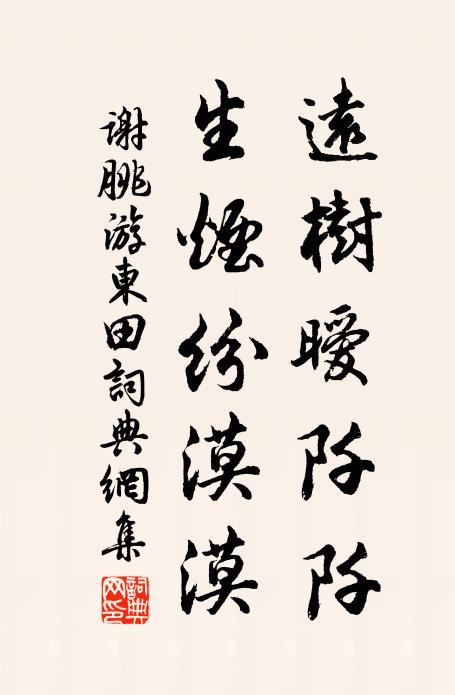 遠樹曖阡阡
生煙紛漠漠
謝朓游東田詞典網集
詞典網印